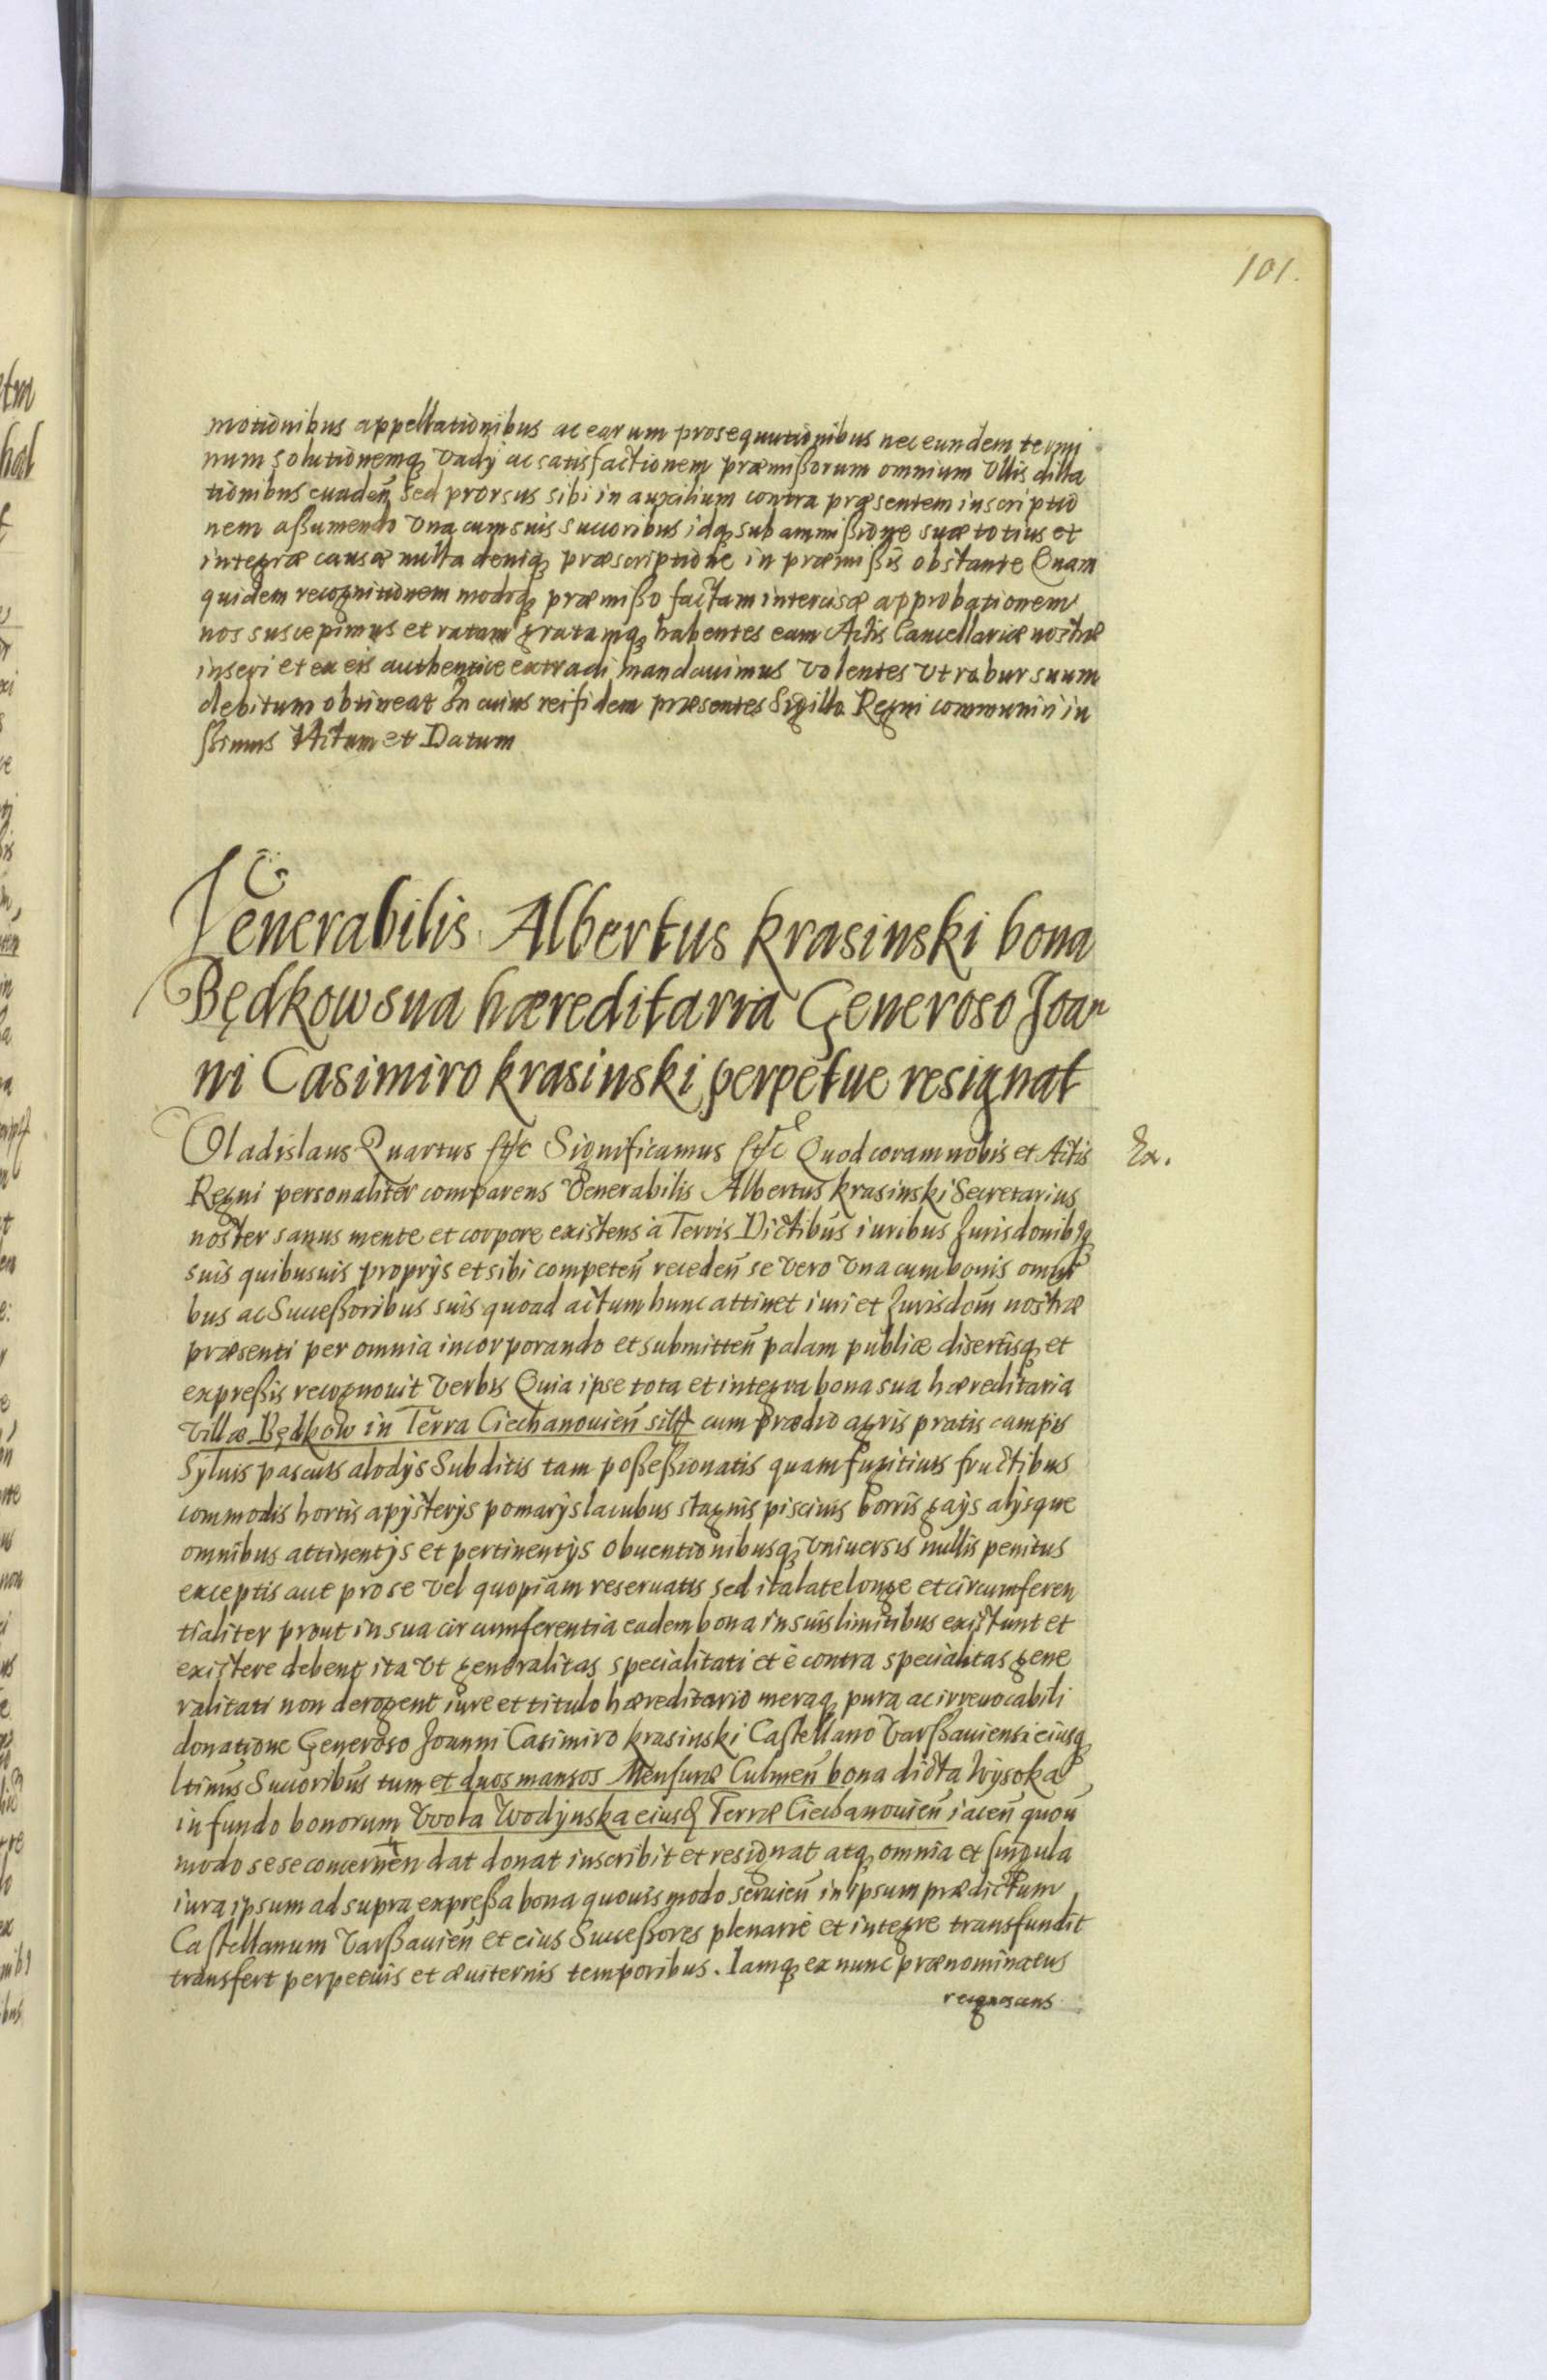 101.
motionibus appellationibus ac earum prosequutionibus nec eundem termi
num solutionemq; vadÿ ac satisfactionem præmißorum omnium Vllis dilla
tionibus euadeñ sed prorsus sibi in auxilium contra præsentem inscriptio
nem aßumendo Vna cum suis succoribus idq; sub ammißione suæ totius et
integræ causæ nulla deniq; præscriptione in præmißis obstante Quam
quidem recognitionem modoq; præmißo factam intercisæ approbationem
nos suscepimus et ratam gratamq; habentes eam Actis Cancellariæ nostræ
inseri et ex eis authentice extradi mandauimus Volentes Vt robur suum
debitum obtineat In cuius rei fidem præsentes Sigillo Regni communiri iu
ßimus Actum et Datum
Venerabilis Albertus Krasinski bona
Będkow sua hæreditaria Generoso Joan
ni Casimiro Krasinski perpetue resignat
Vladislaus Quartus etc Significamus etc Quod coram nobis et Actis
Ex.
Regni personaliter comparens Venerabilis Albertus Krasinski Secretarius
noster sanus mente et corpore existens à Terris Dictibus iuribus Jurisdonibq;
suis quibusuis proprÿs et sibi competeñ recedeñ se vero Vna cum bonis omni
bus ac Sucessoribus suis quoad actum hunc attinet iuri et Jurisdom̃ nostræ
præsenti per omnia incorporando et submitteñ palam publice disertisq; et
expreßis recognouit Verbis Quia ipse tota et integra bona sua hæreditaria
Villæ Będkow in Terra Ciechanouieñ sitt cum prædio agris pratis campis
Syluis pascuis alodÿs Subditis tam poßeßionatis quam fugitiuis fructibus
commodis hortis apÿsterÿs pomarÿs lacubus stagnis piscinis borris gaÿs alÿsque
omnibus attinentÿs et pertinentÿs obuentionibusq; Vniuersis nullis penitus
exceptis aut pro se Vel quopiam reseruatis sed ita late longe et circumferen
tialiter prout in sua circumferentia eadem bona in suis limitibus existunt et
existere debent ita Vt generalitas specialitati et è contra specialitas gene
ralitati non derogent iure et titulo hæreditario meraq; pura ac irreuocabili
donatione Generoso Joanni Casimiro Krasinski Castellano Varßauiensi eiusq;
ltimis Succoribus tum et duos mansos Mensuræ Culmeñ bona dicta Wÿsoka
in fundo bonorum Wola Wodÿnska eiusd Terræ Ciechanouieñ iaceñ quou
modo sese concernen dat donat inscribit et resignat atq; omnia et singula
iura ipsum ad supra expreßa bona quouis modo seruieñ in ipsum prædictum
Castellanum Varßauieñ et eius Sucessores plenarie et integre transfundit
transfert perpetuis et æuiternis temporibus. Iamq; ex nunc prænominatus
recognoscens